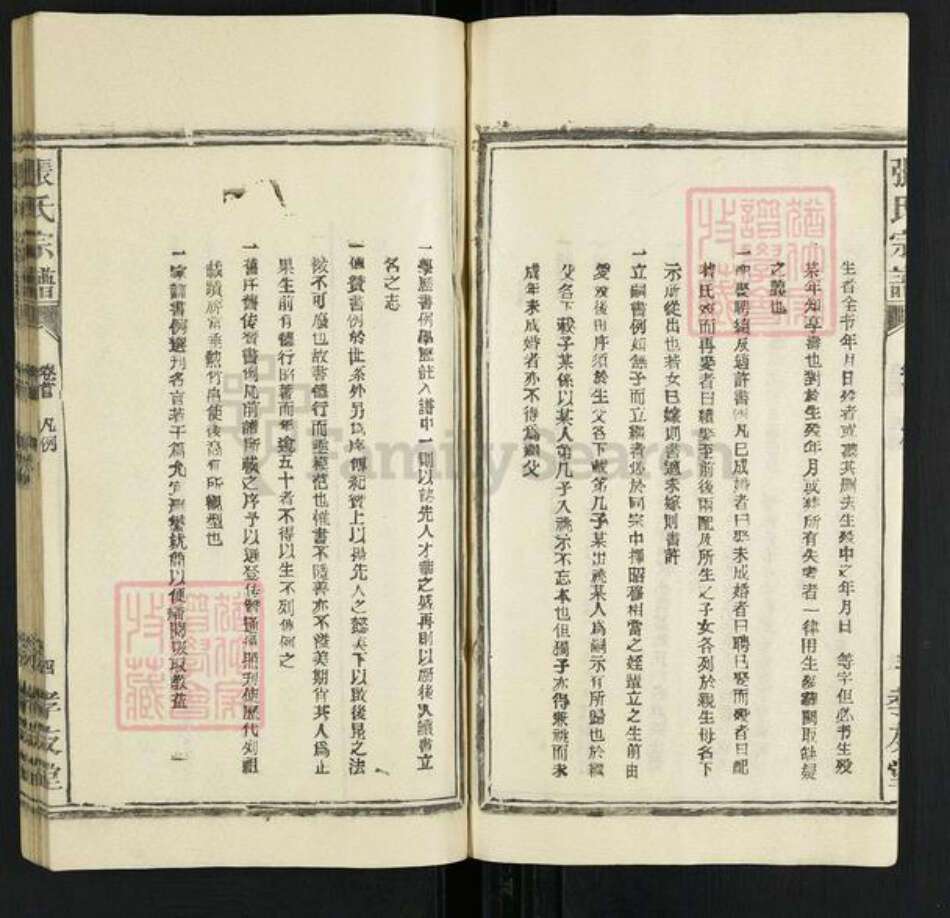 張氏宗譜
生者全书年月日殁者或讓其刪去生殁中之年月日 等字但必书生殁
某年知享壽也對於生殁年月或葬所有失考者一律用生殁葬闕取缺疑
之義也
一 娶聘續及適許書例凡已成婚者曰娶未成婚者曰聘已娶而殁者曰配
某氏 而再娶者曰續娶至前後兩配及所生之子女各列於親生母名下
示所從出也若女已嫁則書適未嫁則書許
一立嗣書例如無子而立繼者必於同宗中擇昭穆相當之姪輩立之生前由
愛 後由序須於生父名下載第几子某出祧某人為嗣示有所歸也於繼
父名下載子某係以某人第几子入祧示不忘本也但獨子亦得兼祧而未
成年未成婚者亦不得為繼父
孝友堂
張氏宗譜
卷首 凡例
一學歷書例學歷註入譜中一則以誌先人才華之盛再則以励後人讀書立
名之志
一傳贊書例於世系外另 序傳紀實上以揚先人之懿美下以啟後昆之法
故不可廢也故書德行而垂模范也惟書不隱善亦不溢美期肖其人為止
果生前有德行昭著而年逾五十者不得以生不列傳例之
一舊序舊传赞書例凡前譜所載之序予以选登传赞通通照刊使歷代列祖
載蹟 常垂 使後裔有所觀型也
一家訓書例選刊名言若干篇尤宜刪繁就簡以便繙閱吸取教益
四 孝友堂